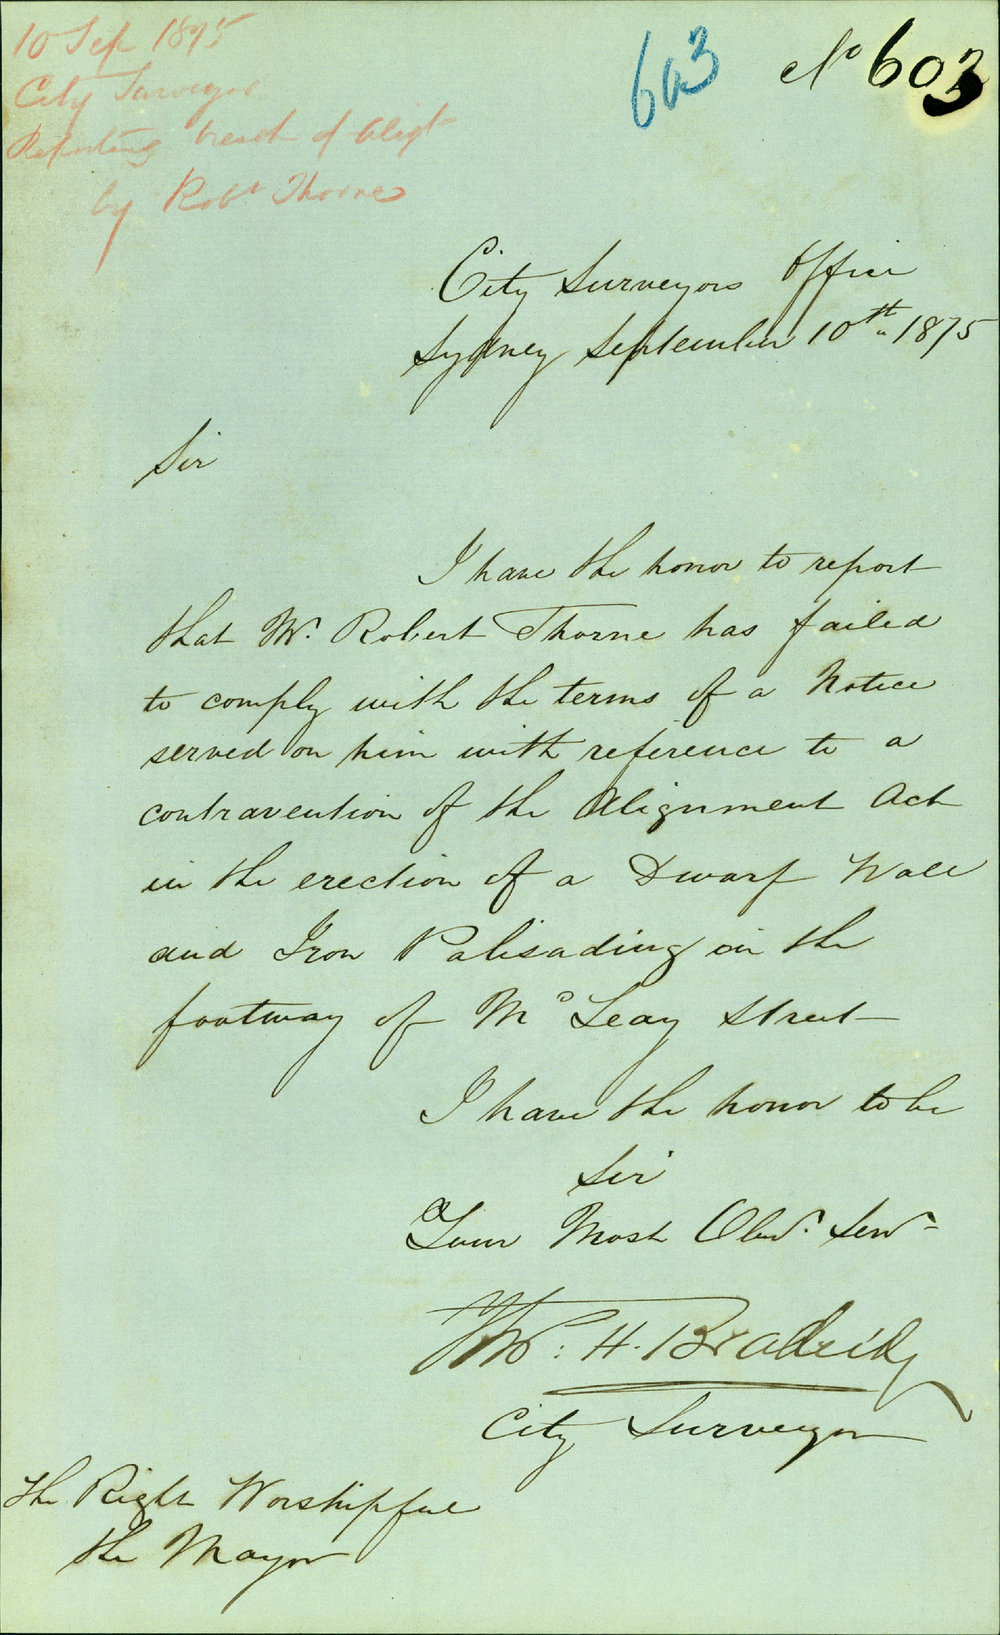 10 Sep 1875
City Surveyor
Reporting breach of Aligt
by Robt Thorne
603
No 603
City Surveyors Office
Sydney September 10th 1875
Sir
I have the honor to report
that Mr. Robert Thorne has failed
to comply with the terms of a Notice
served on him with reference to a
contravention of the Alignment Act
in the erection of a Dwarf Wall
and Iron Palisading on the
footway of McLeay Street
I have the honor to be
Sir
Your Most Obdt. Servt
H. Bradridge
City Surveyor
The Right Worshipful
the Mayor